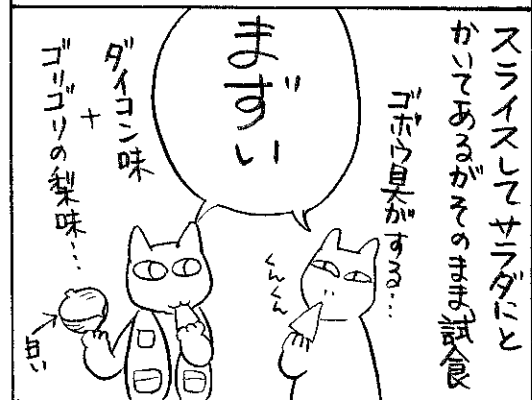 スライスしてサラダにと
かいてあるがそのまま試食
ゴボウ臭がする…
くんくん
まずい
ダイコン味
+
ゴリゴリの梨味…
白い